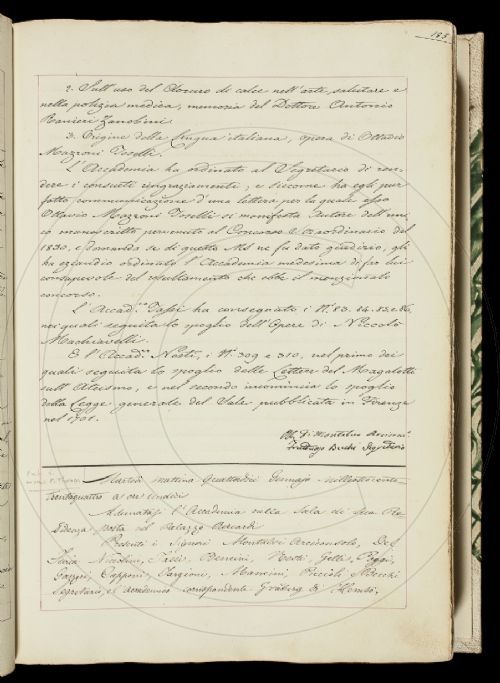 195
2. Sull'uso del Cloruro di calce nell'arte salutare e
nella polizia medica, memoria del Dottore Antonio
Ranieri Zanobini.
3. Origine della lingua italiana, opera di Ottavio
Mazzoni Toselli.
L'Accademia ha ordinato al Segretario di ren-
dere i consueti ringraziamenti, e siccome ha egli pur
fatto comunicazione d'una lettera per la quale esso
Ottavio Mazzoni Toselli si manifesta Autore dell'uni-
co manoscritto pervenuto al Concorso straordinario del
1830, e domanda se di questo Ms ne fu dato giudizio, gli
ha eziandio ordinato l'Accademia medesima di far lui
consapevole del resultamento che ebbe il menzionato
concorso.
L'Accad.co Tassi ha consegnato i N.i 83. 84. 85. e 86.
nei quali seguita lo spoglio dell'Opere di Niccolò
Machiavelli.
E l'Accad.co Nesti, i N.i 309 e 310, nel primo dei
quali seguita lo spoglio delle Lettere del Magalotti
sull'Ateismo, e nel secondo incomincia lo spoglio
della Legge generale del Sale pubblicata in Firenze
nel 1701.
di Montalvo Arcicons.
Fruttuoso Becchi Segretario
Martedì mattina Quattordici Gennajo milleottocento
trentaquattro a ore undici
Adunatasi l'Accademia nella Sala di sua Re-
sidenza posta nel Palazzo Riccardi
Presenti i Signori Montalvi Arciconsolo, Del
Furia, Niccolini, Tassi, Bencini, Nesti, Gelli, Poggi,
Gazzeri, Capponi, Targioni, Mancini, Piccioli, Becchi
Segretario, e l'accademico corrispondente Gråberg di Hemsö.